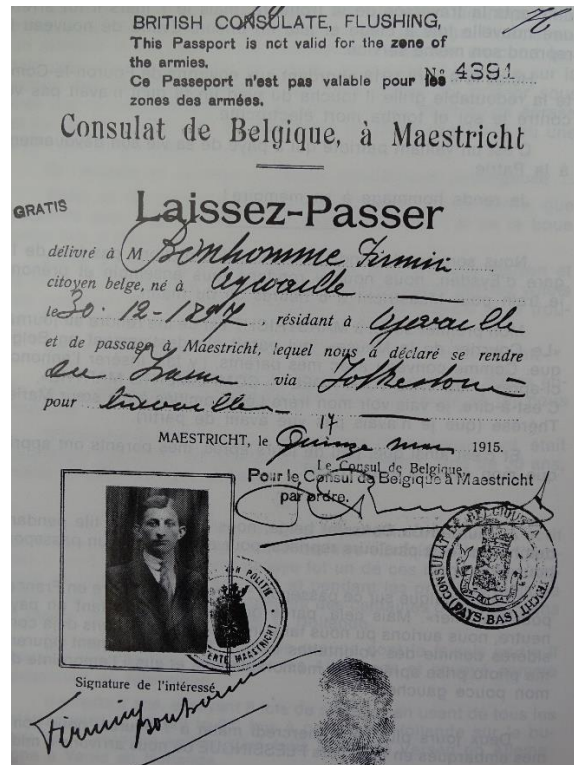 76
BRITISH CONSULATE, FLUSHING,
This Passport is not valid for the zone of
the armies.
Ce Passeport n'est pas valable pour les
zones des armées.
No 4391
Consulat de Belgique, à Maestricht
GRATIS
Laissez-Passer
délivré à M Bonhomme Firmin
citoyen belge, né à Aywaille
le 30.12-1897, résidant à Aywaille
et de passage à Maestricht, lequel nous a déclaré se rendre
en France via Folkestone
pour travailler
17
MAESTRICHT, le Quinze mai 1915.
Le Consul de Belgique,
Pour le Consul de Belgique à Maestricht
par ordre.
CONSULAT DE BELGIQUE
(PAYS-BAS)
POLITIE
MAASTRICHT
Signature de l'intéressé,
Firmin Bonhomme